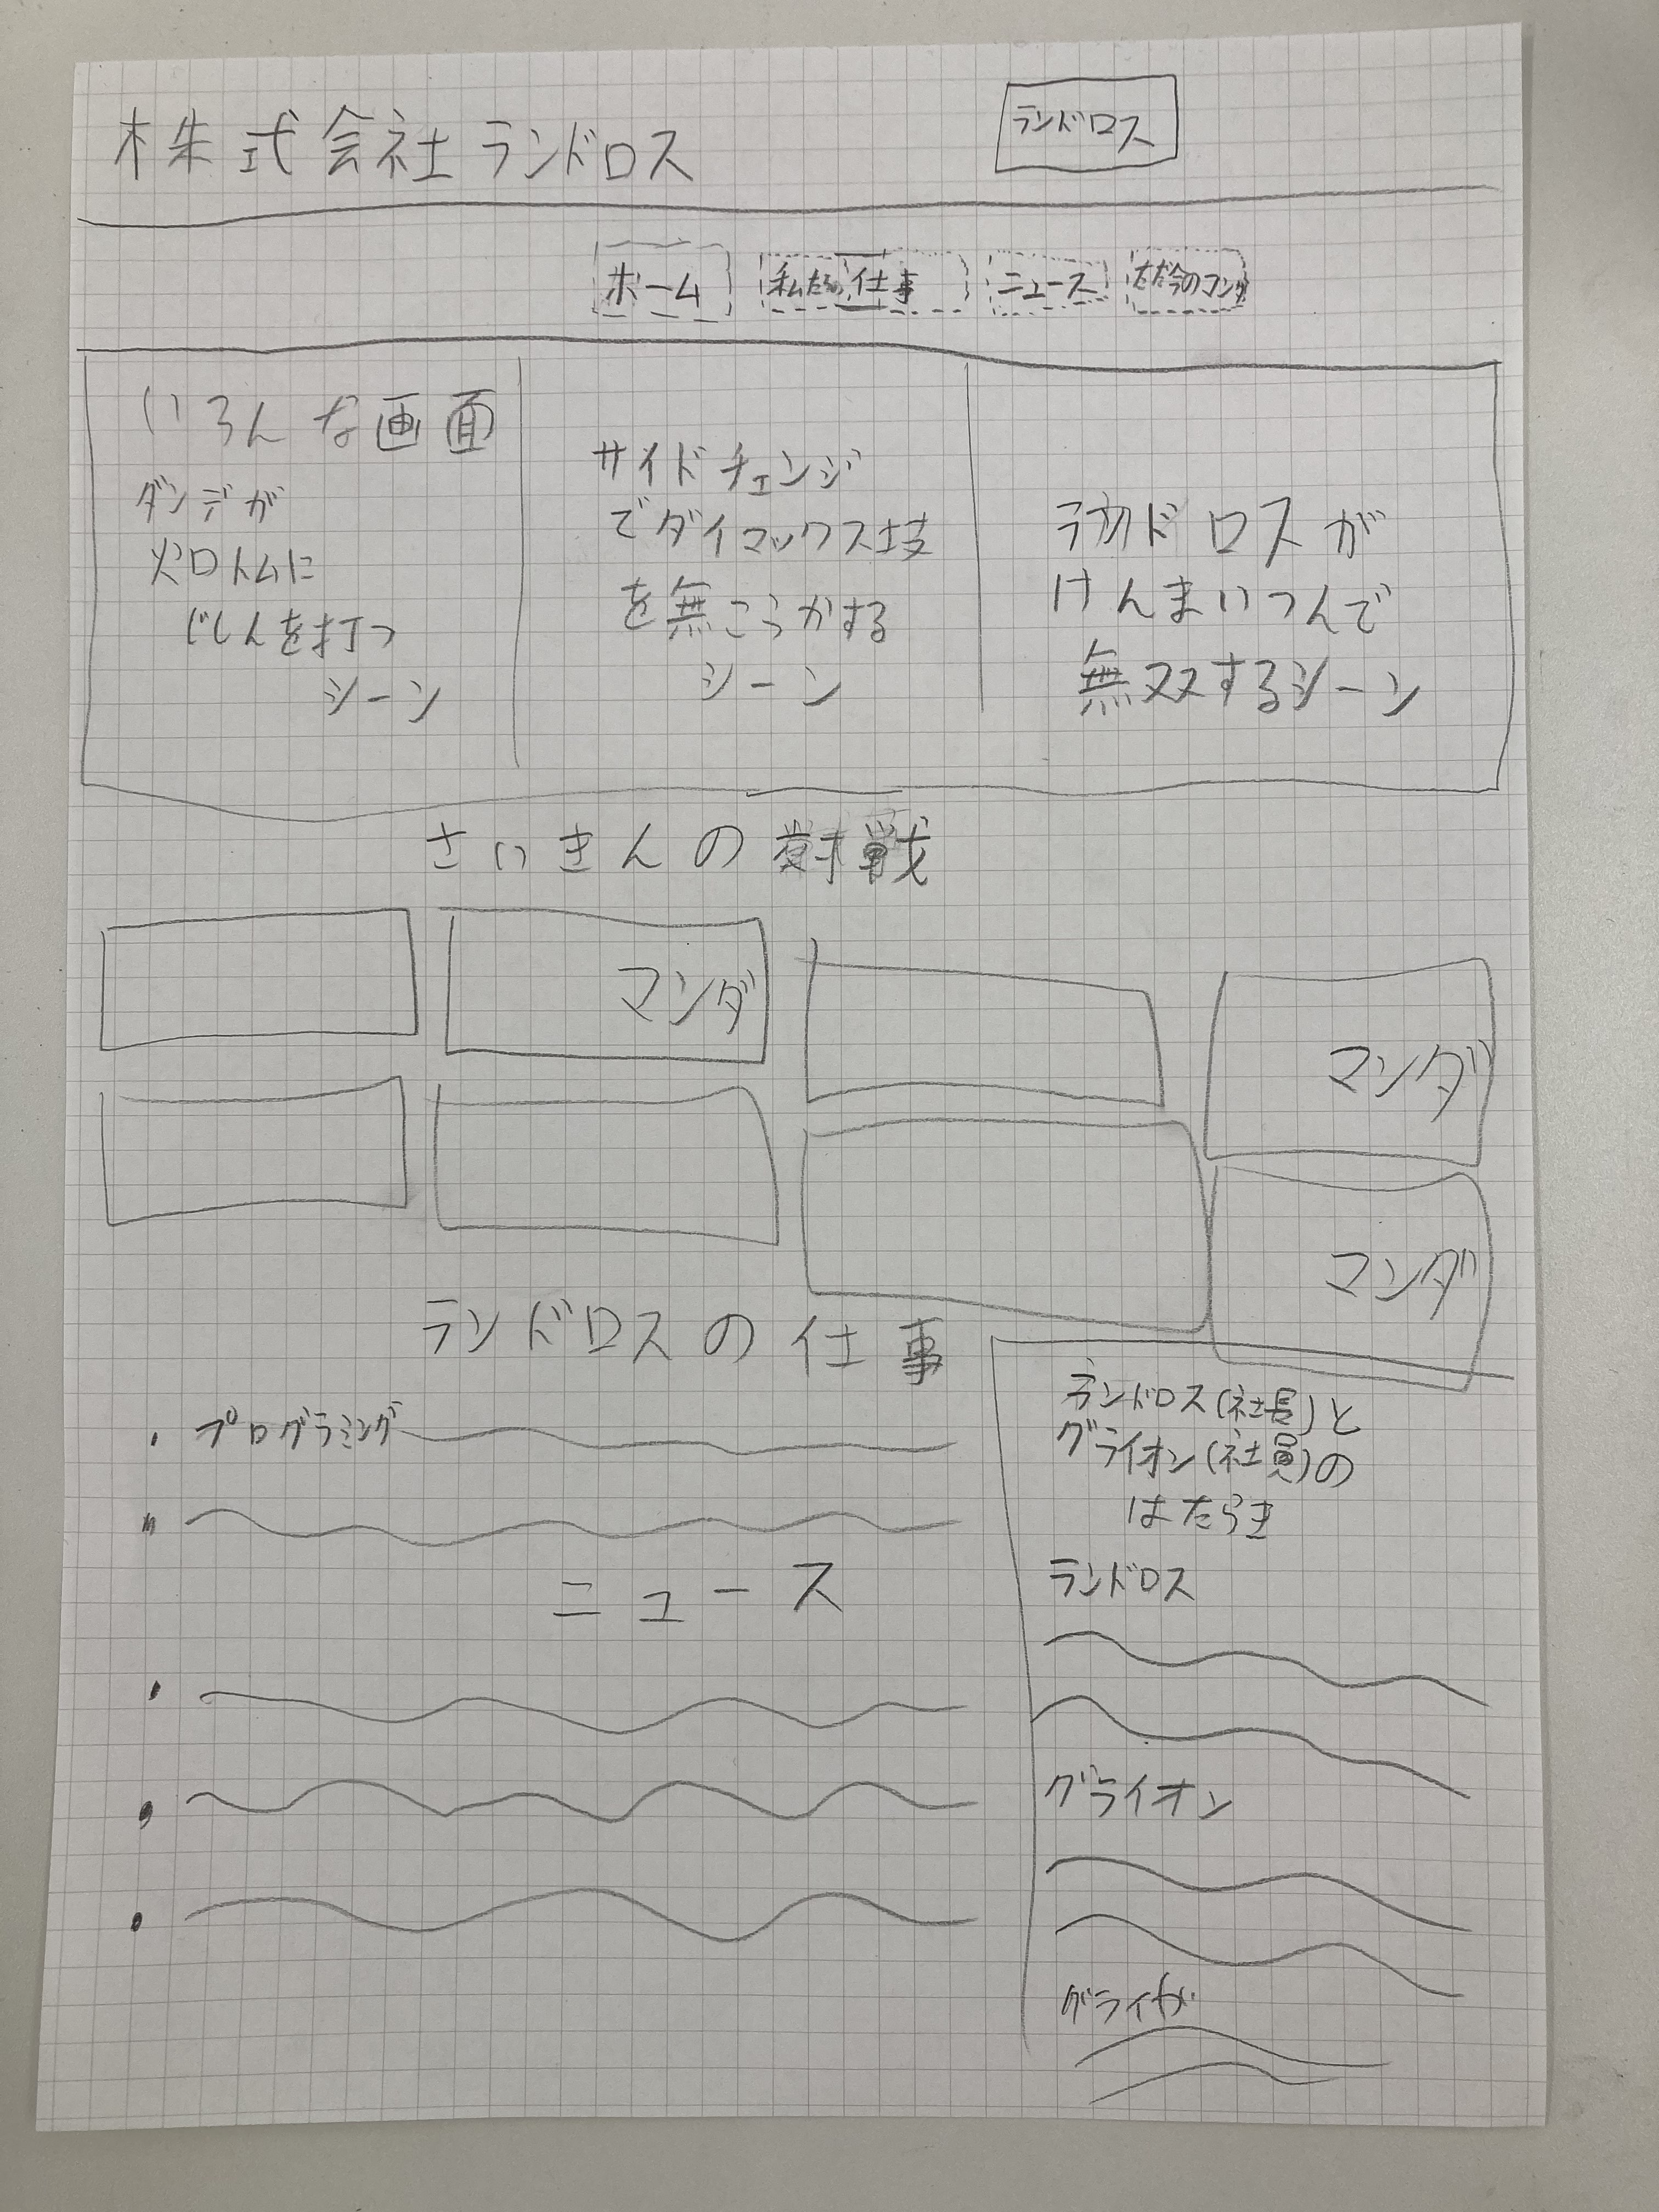 株式会社ランドロス
ランドロス
ホーム
私たちの仕事
ニュース
ただ今のコンク
いろんな画面
ダンデが
火ロトムに
じしんを打つ
シーン
サイドチェンジ
でダイマックス技
を無こうかする
シーン
ランドロスが
けんまいつんで
無双するシーン
さいきんの対戦
マンダ
マンダ
マンダ
ランドロスの仕事
・プログラミング
ニュース
ランドロス(社長)と
グライオン(社員)の
はたらき
ランドロス
グライオン
グライガ